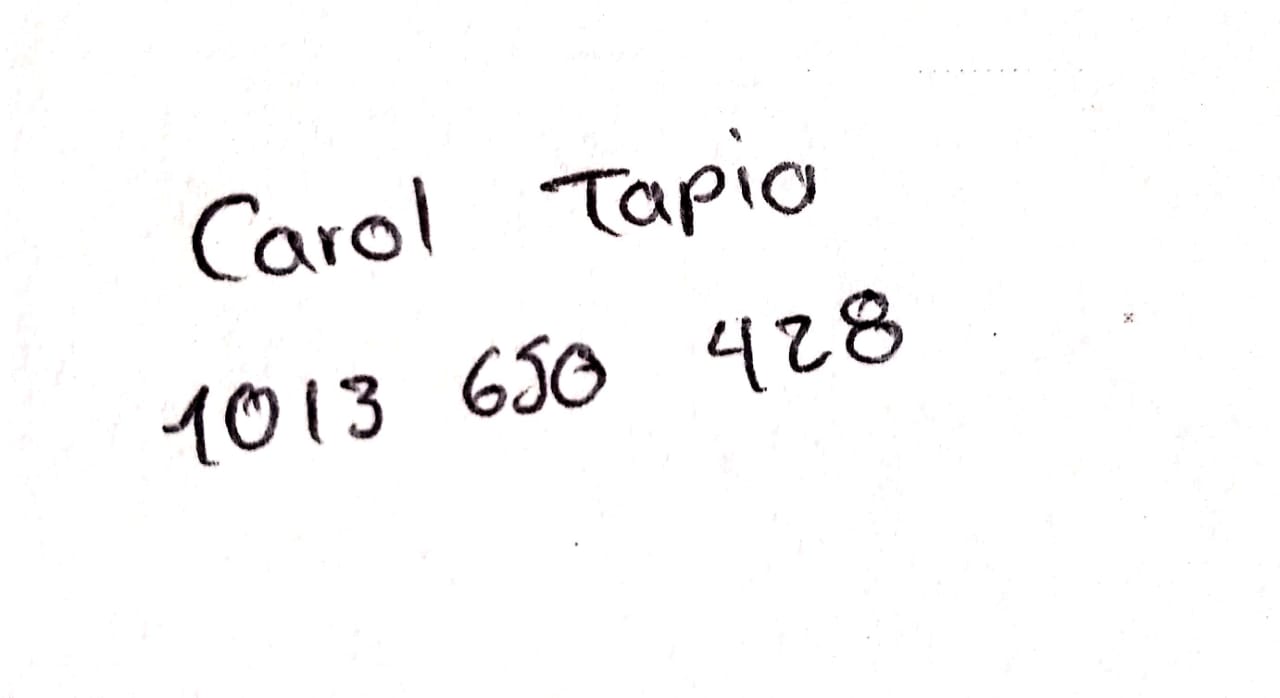 Carol Tapia
1013 650 428